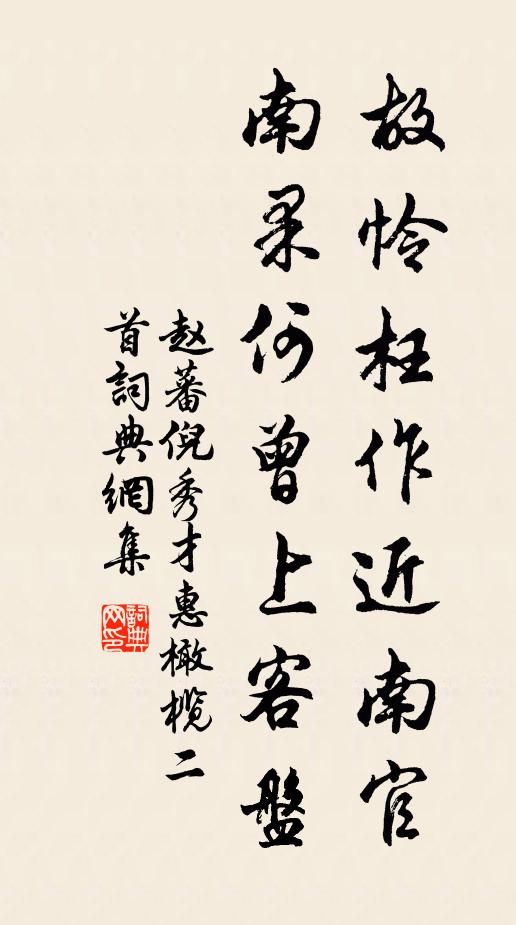 故怜枉作近南官
南果何曾上客盤
赵蕃倪秀才惠橄榄二
首詞典網集
詞典
网印